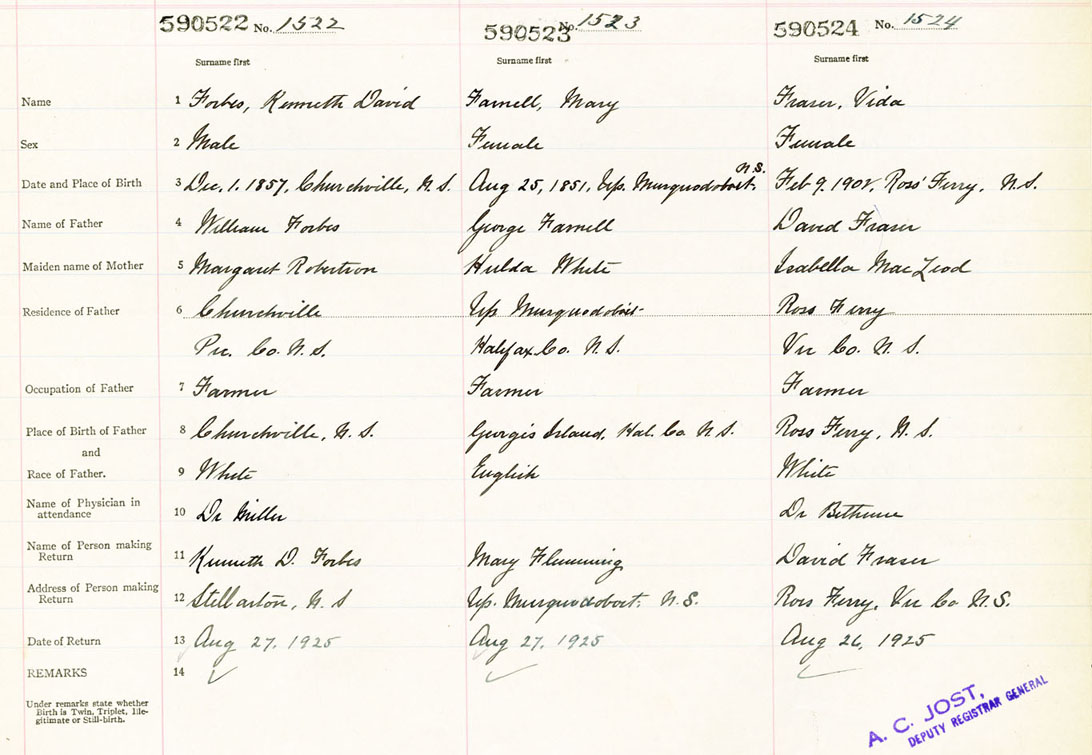 590522 No. 1522 590523 No. 1523 590524 No. 1524
Surname first Surname first Surname first
Name 1 Forbes, Kenneth David Farnell, Mary Fraser, Vida
Sex 2 Male Female Female
N.S.
Date and Place of Birth 3 Dec. 1. 1857, Churchville, N.S. Aug 25, 1851, Up. Musquodoboit. Feb 9. 1902, Ross' Ferry, N.S.
Name of Father 4 William Forbes George Farnell David Fraser
Maiden name of Mother 5 Margaret Robertson Hulda White Isabella MacLeod
Residence of Father 6 Churchville Up Musquodoboit Ross Ferry
Pic. Co. N.S. Halifax Co. N.S. Vic Co. N.S.
Occupation of Father 7 Farmer Farmer Farmer
Place of Birth of Father 8 Churchville, N.S. George's Island, Hal. Co N.S. Ross Ferry, N.S.
and
Race of Father. 9 White English White
Name of Physician in
attendance 10 Dr Miller Dr Bethune
Name of Person making
Return 11 Kenneth D. Forbes Mary Flemming David Fraser
Address of Person making
Return 12 Stellarton, N.S Up. Musquodoboit, N.S. Ross Ferry, Vic Co N.S.
Date of Return 13 Aug 27, 1925 Aug 27, 1925 Aug 26, 1925
REMARKS 14
Under remarks state whether
Birth is Twin, Triplet, Ille-
gitimate or Still-birth.
A. C. JOST,
DEPUTY REGISTRAR GENERAL